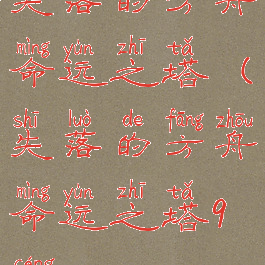 失落的方舟
mìng yùn zhī tǎ
命运之塔(
shī luò de fāng zhōu
失落的方舟
mìng yùn zhī tǎ
命运之塔9